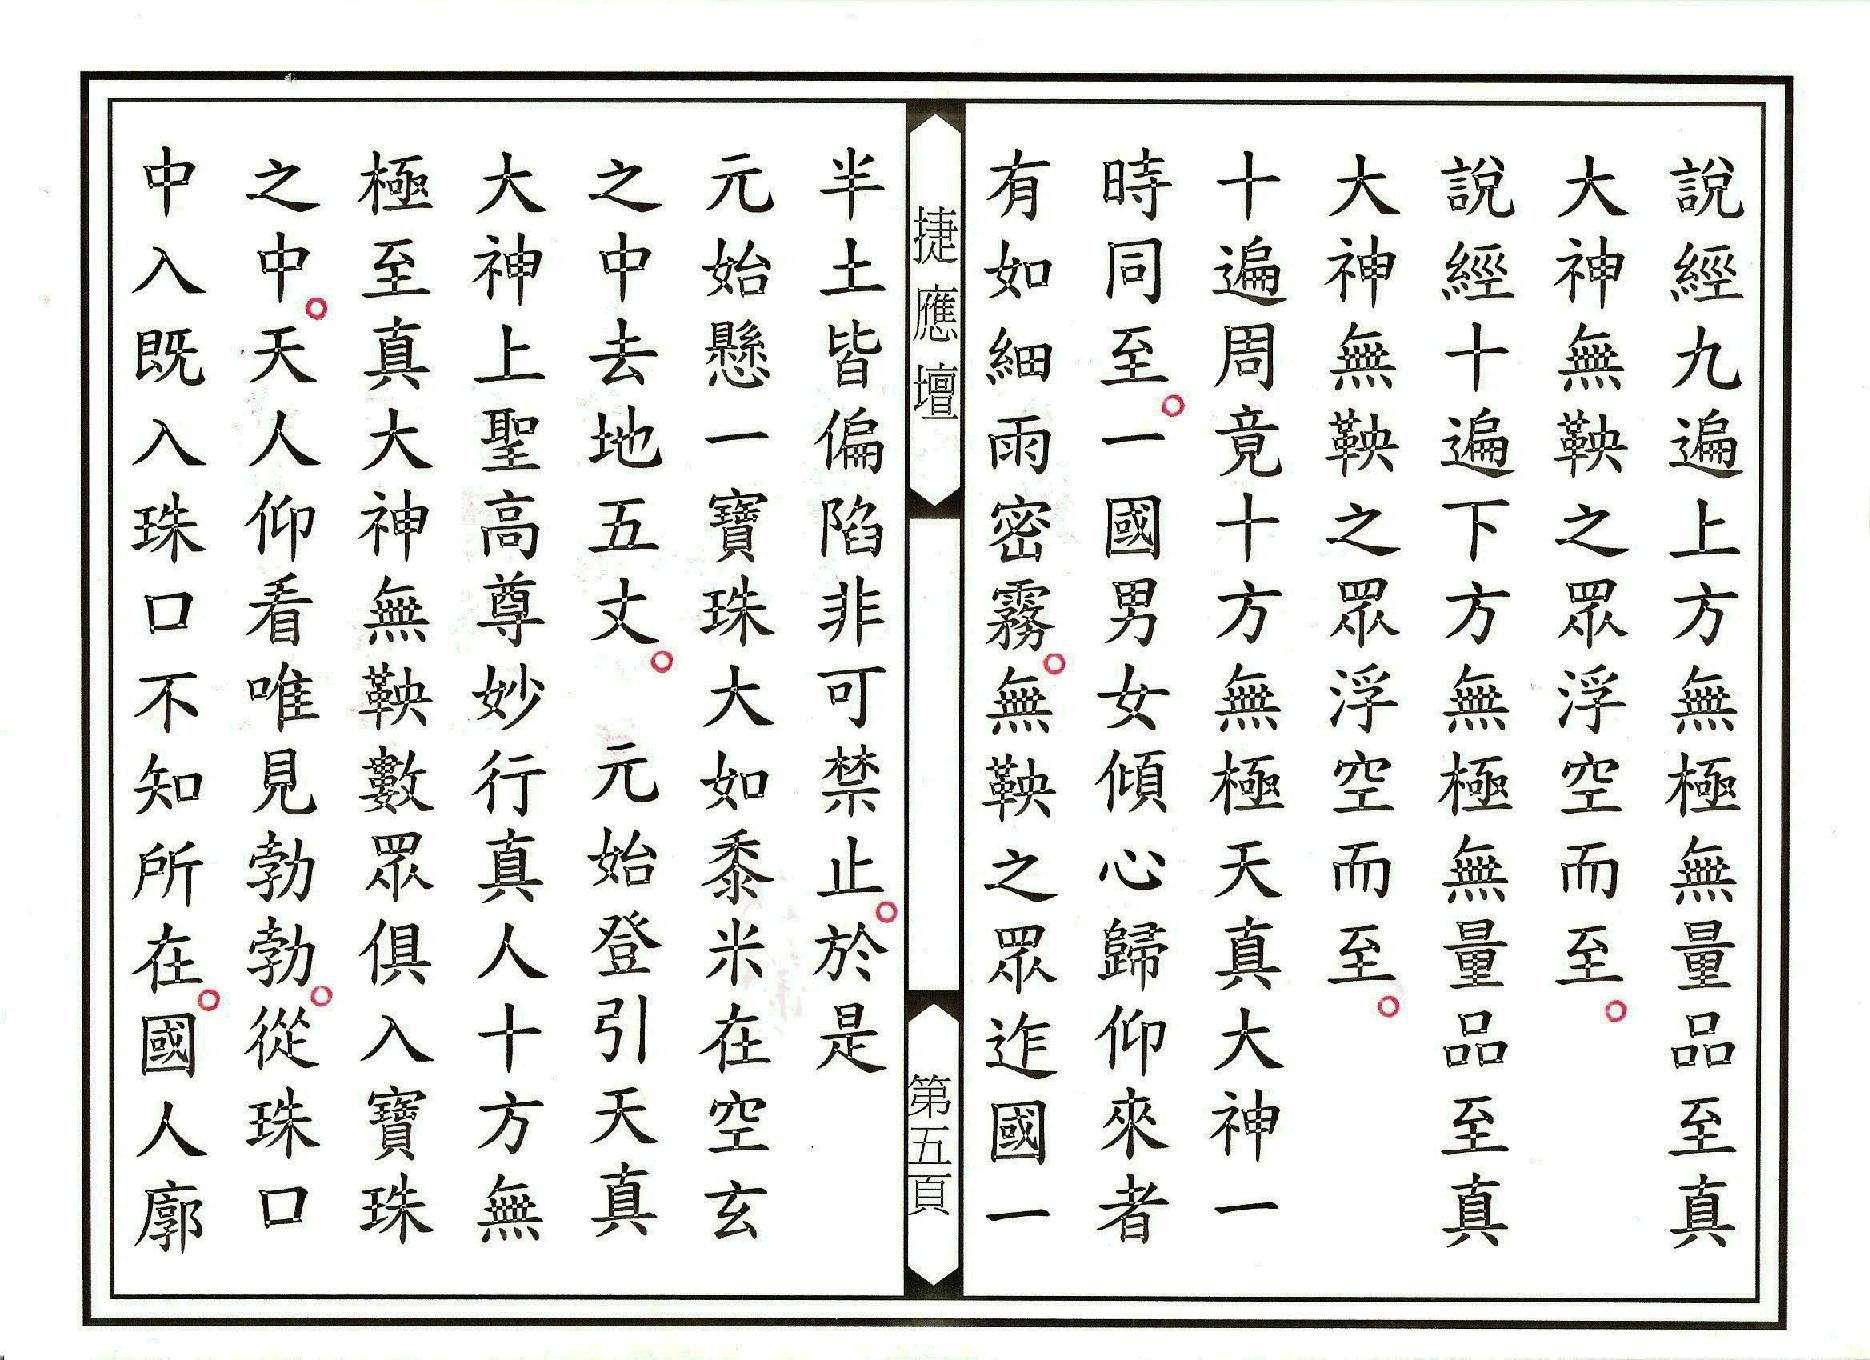 說經九遍上方無極無量品至真
大神無鞅之眾浮空而至。
說經十遍下方無極無量品至真
大神無鞅之眾浮空而至。
十遍周竟十方無極天真大神一
時同至。一國男女傾心歸仰來者
有如細雨密霧。無鞅之眾迮國一
捷應壇
第五頁
半土皆偏陷非可禁止。於是
元始懸一寶珠大如黍米在空玄
之中去地五丈。 元始登引天真
大神上聖高尊妙行真人十方無
極至真大神無鞅數眾俱入寶珠
之中。天人仰看唯見勃勃。從珠口
中入既入珠口不知所在。國人廓